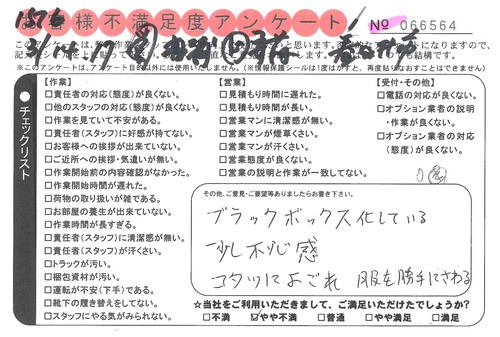 お客様不満足度アンケート
No 066564
※このアンケートは、アンケート目的以外には使用いたしません。(※情報保護シールは1度がすと、再度貼りなおすことはできません)
チェックリスト
【作業】
□責任者の対応(態度)が良くない。
□他のスタッフの対応(態度)が良くない。
□作業を見ていて不安がある。
□責任者(スタッフ)に好感が持てない。
□お客様への挨拶が出来ていない。
□ご近所への挨拶・気遣いが無い。
□作業開始前の内容確認がなかった。
□作業開始時間が遅れた。
□荷物の取り扱いが雑である。
□お部屋の養生が出来ていない。
□作業時間が長すぎる。
□責任者(スタッフ)に清潔感が無い。
□責任者(スタッフ)が汗くさい。
□トラックが汚い。
□梱包資材が汚い。
□運転が不安(下手)である。
□靴下の履き替えをしてない。
□スタッフにやる気がみられない。
【営業】
□見積もり時間に遅れた。
□見積もり時間が長い。
□営業マンに清潔感が無い。
□営業マンが煙草くさい。
□営業マンが汗くさい。
□営業態度が良くない。
□営業の説明と作業が一致してない。
【受付・その他】
□電話の対応が良くない。
□オプション業者の説明
・作業が良くない。
□オプション業者の対応
(態度)が良くない。
その他、ご意見・ご要望等ありましたらお書き下さい。
ブラックボックス化している
少し不心感
コタツによごれ 服を勝手にさわる
☆当社をご利用いただきまして、ご満足いただけたでしょうか?
□不満 ☑やや不満 □普通 □やや満足 □満足